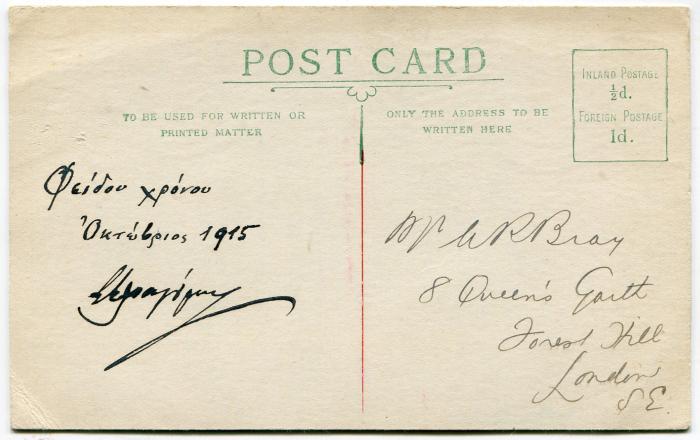 POST CARD
TO BE USED FOR WRITTEN OR
PRINTED MATTER
ONLY THE ADDRESS TO BE
WRITTEN HERE
INLAND POSTAGE
½d.
FOREIGN POSTAGE
1d.
Φείδου χρόνου
Ὀκτώβριος 1915
Bray
8 Queen's Garth
Forest Hill
London
S.E.